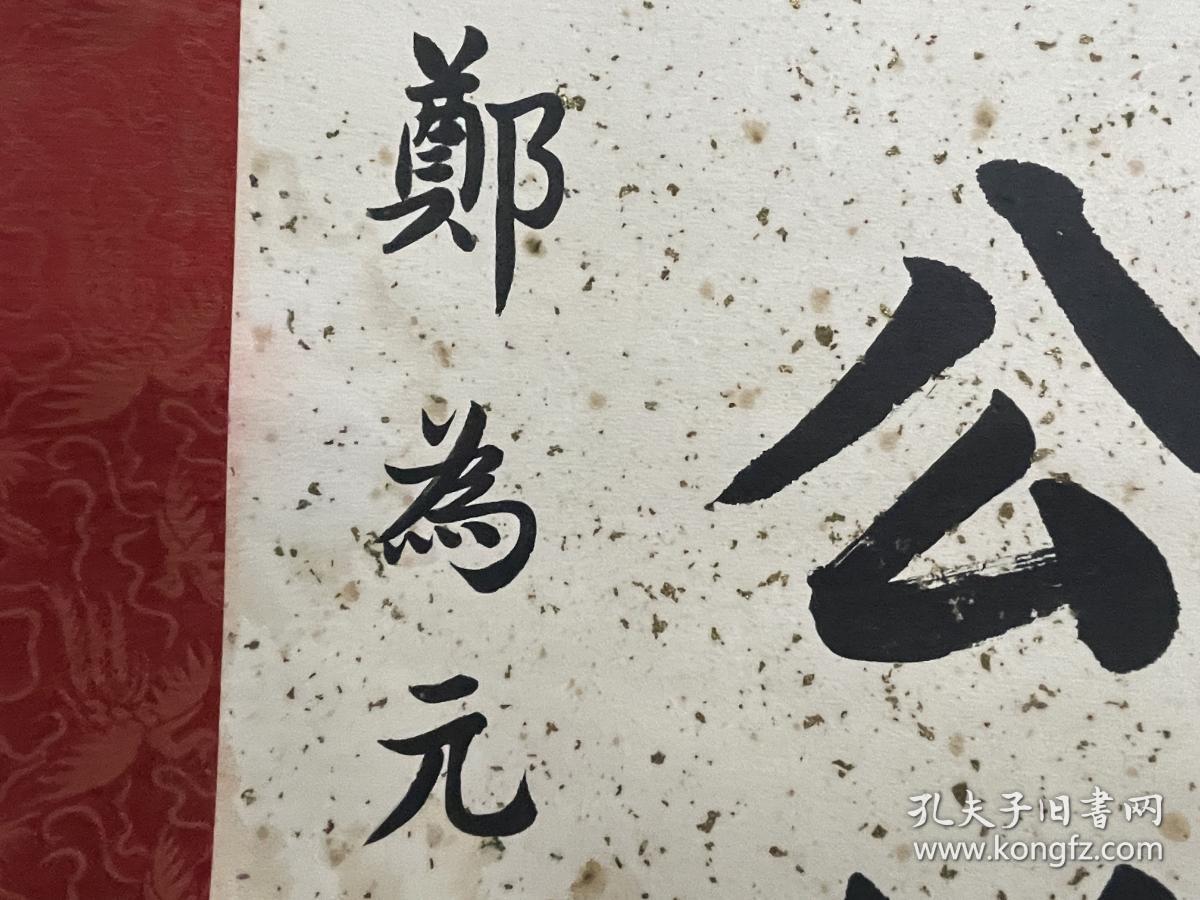 公
鄭為元
孔夫子旧書网
www.kongfz.com